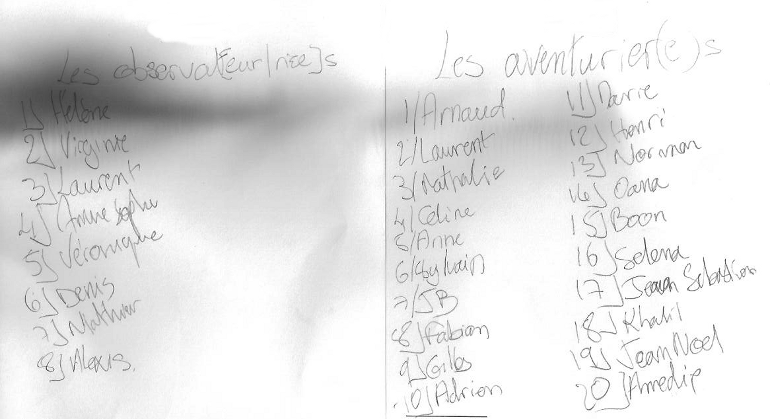 Les observat[eur/rice]s
1) Hélène
2) Virginie
3) Laurent
4) Anne Sophie
5) Véronique
6) Denis
7) Mathieu
8) Alexis.
Les aventurier(e)s
1/ Arnaud.
2/ Laurent
3/ Nathalie
4/ Céline
5/ Anne
6/ Sylvain
7/ JB
8) Fabian
9) Gilles
10) Adrien
11)
12) Henri
13) Norman
14) Oana
15) Boon
16) Selena
17) Jean Sébastien
18) Khalil
19) Jean Noel
20) Amedie